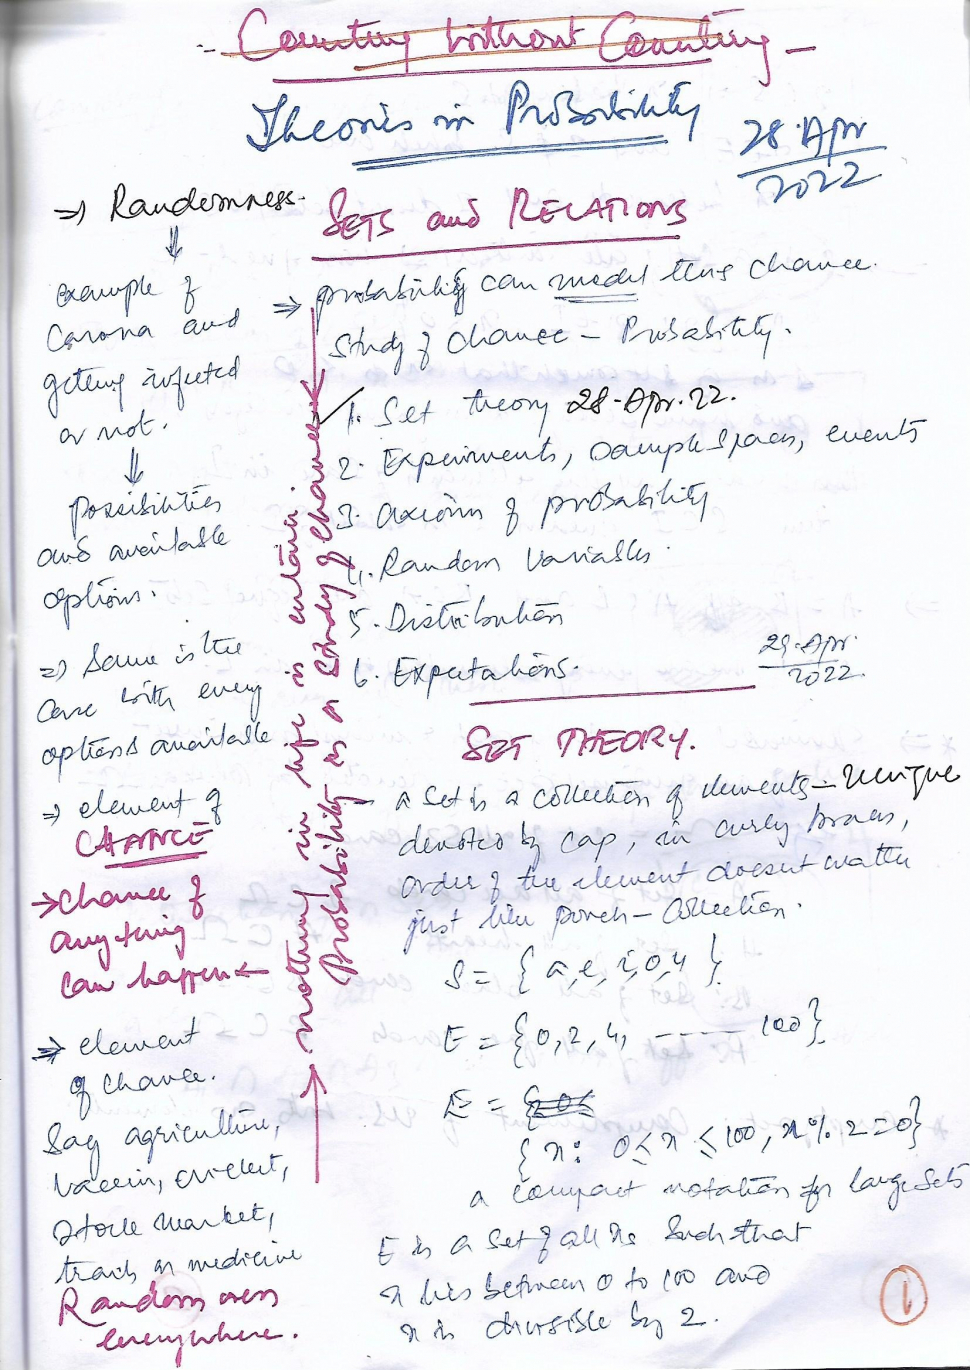 - Counting without Counting -
Theories in Probability
28.Apr
2022
=> Randomness.
example of
Corona and
getting infected
or not.
possibilities
and available
options.
=> Same is the
case with every
options available
=> element of
CHANCE
-> Chance of
anything
can happen <-
=> element
of chance.
Say agriculture,
vaccin, cricket,
stock market,
trails in medicine
Randomness
everywhere.
nothing in life is certain.
Probability is a study of chance.
SETS and RELATIONS
=> probability can model this chance.
Study of chance - Probability.
1. Set theory 28-Apr.22.
2. Experiments, Sample Spaces, events
3. axioms of probability
4. Random Variables.
5. Distribution
6. Expectations.
29.Apr
2022
SET THEORY.
- a set is a collection of elements - Unique
denoted by cap, in curly braces,
order of the element doesnt matter
just like pouch - Collection.
S = { a, e, i, o, u }.
E = {0, 2, 4, ------ 100}.
E =
{ x : 0 ≤ x ≤ 100, x % 2 = 0}
a compact notation for large sets
E is a set of all xs such that
x lies between 0 to 100 and
x is divisible by 2.
1